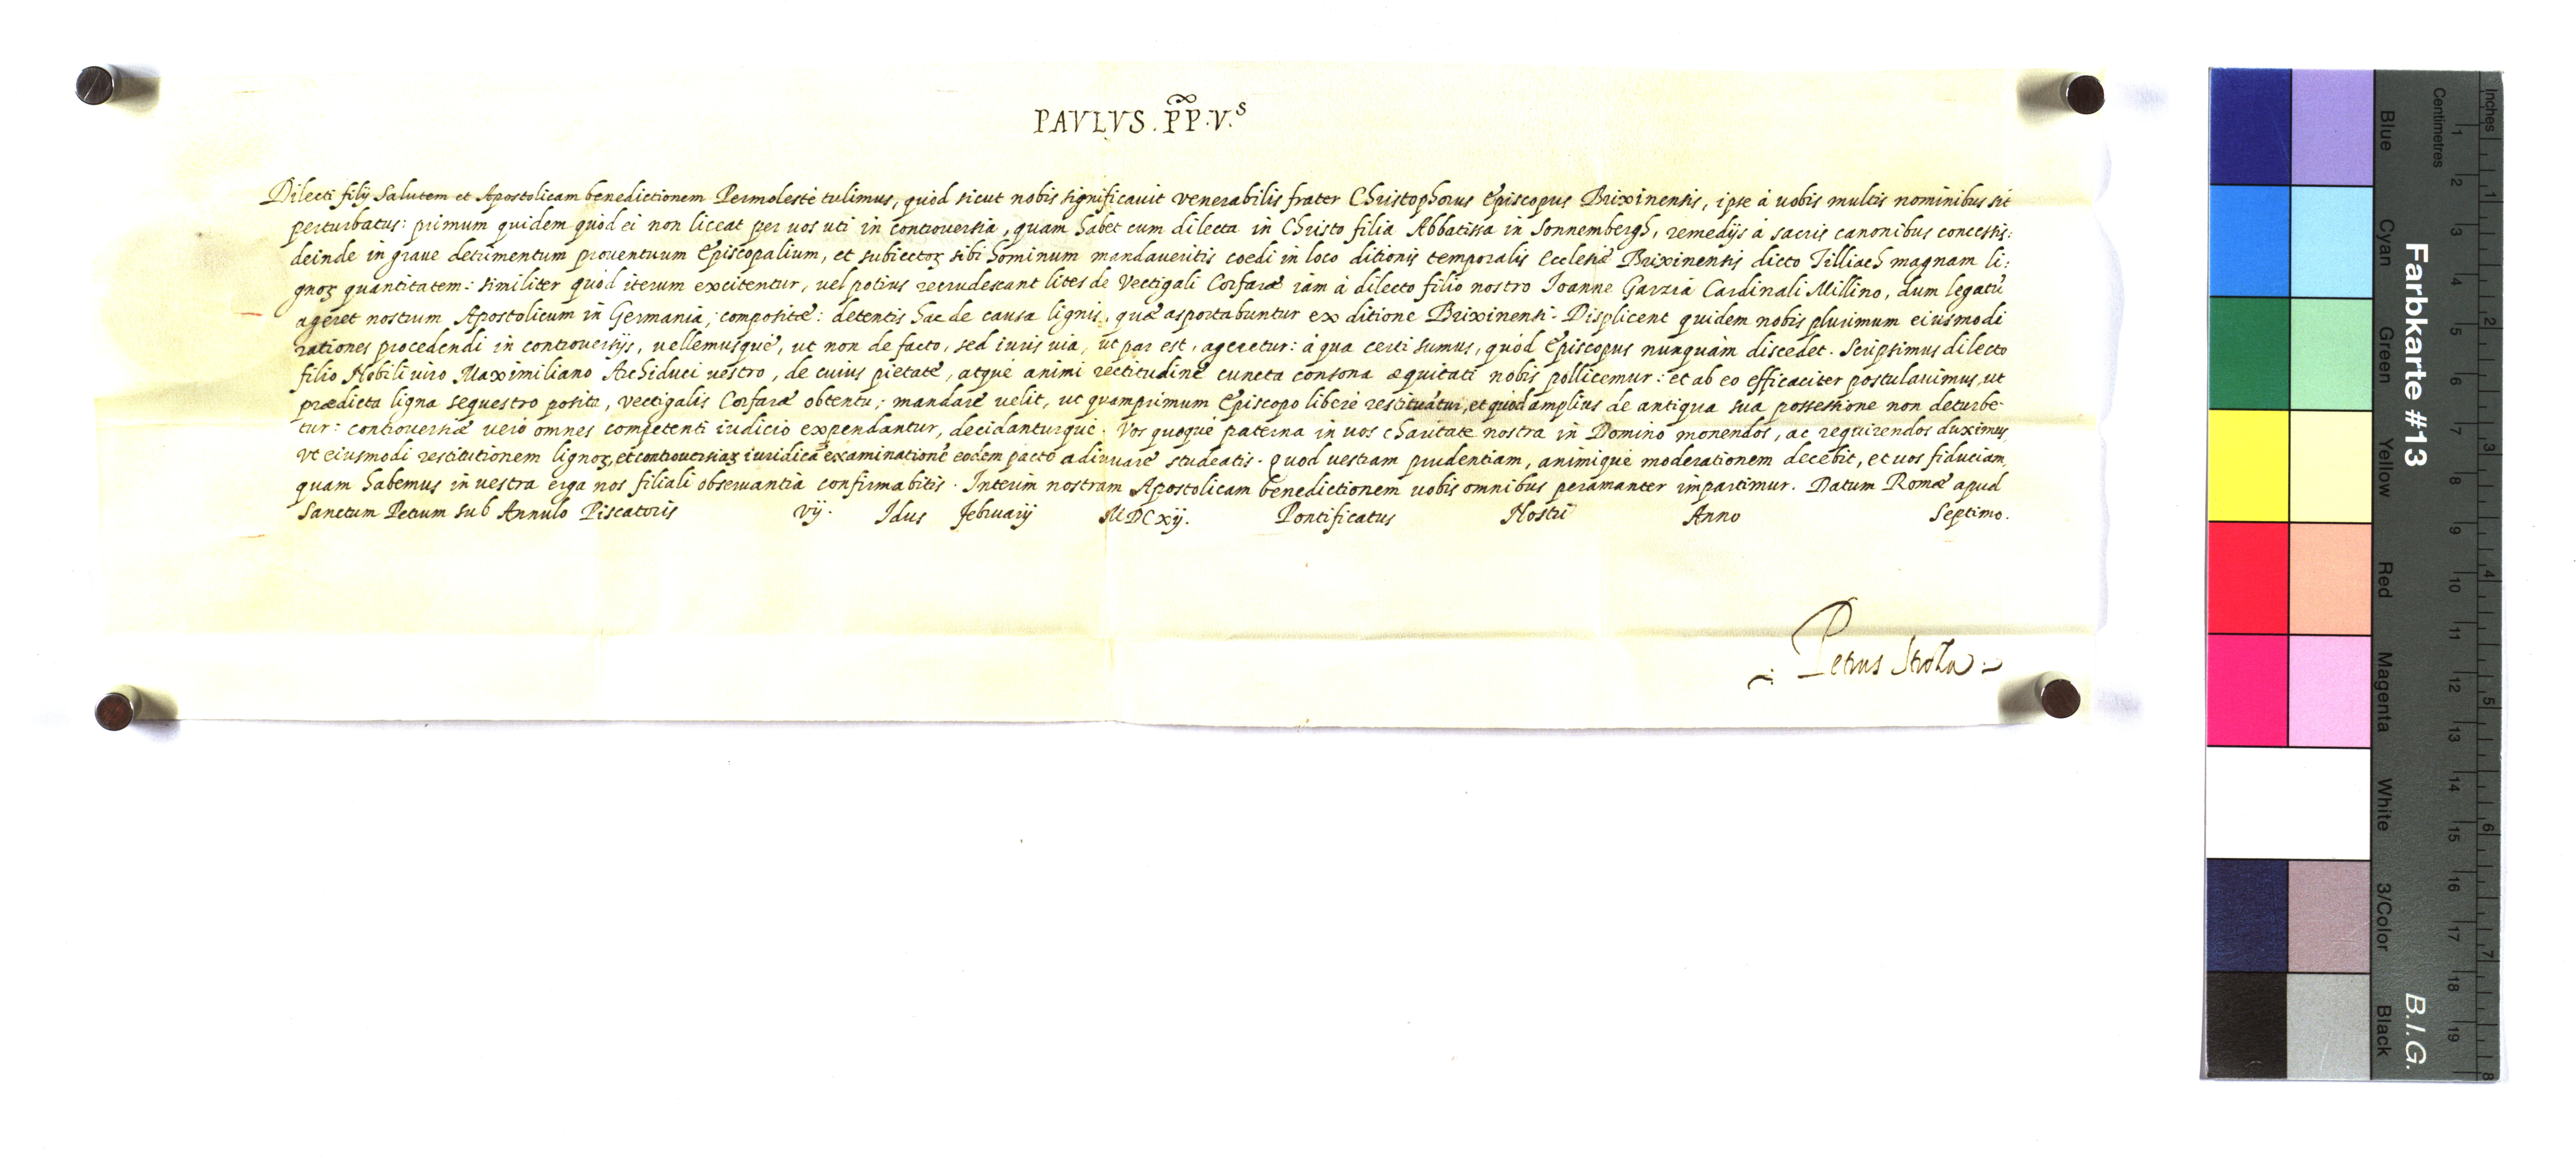 PAVLVS . PP. V.s
Dilecti filij Salutem et Apostolicam benedictionem Permolestè tulimus, quòd sicut nobis significauit Venerabilis frater Christophorus Episcopus Brixinensis, ipse à uobis multis nominibus sit
perturbatus: primum quidem quòd ei non liceat per uos uti in controuersia, quam habet cum dilecta in Christo filia Abbatissa in Sonnembergh, remedijs à sacris canonibus concessis:
deinde in graue detrimentum prouentuum Episcopalium, et subiectoꝝ sibi hominum mandaueritis coedi in loco ditionis temporalis Ecclesiæ Brixinensis dicto Tilliach magnam li:
gnoꝝ quantitatem: similiter quòd iterum excitentur, uel potius recrudescant lites de Vectigali Corfaræ iàm à dilecto filio nostro Ioanne Garzia Cardinali Millino, dum legatũ
ageret nostrum Apostolicum in Germania, compositæ: detentis hac de causa lignis, quæ asportabuntur ex ditione Brixinensi. Displicent quidem nobis plurimum eiusmodi
rationes procedendi in controuersijs, uellemusque, ut non de facto, sed iuris uia, ut par est, ageretur: à qua certi sumus, quòd Episcopus nunquàm discedet. Scripsimus dilecto
filio Nobili uiro Maximiliano Archiduci uestro, de cuius pietate, atque animi rectitudine cuncta consona æquitati nobis pollicemur: et ab eo efficaciter postulauimus, ut
prædicta ligna sequestro posita, Vectigalis Corfaræ obtentu, mandare uelit, ut quamprimum Episcopo liberè restituãtur, et quòd amplius de antiqua sua possessione non deturbe-
tur: controuersiæ uerò omnes competenti iudicio expendantur, decidanturque. Vos quoque paterna in uos charitate nostra in Domino monendos, ac requirendos duximus,
ut eiusmodi restitutionem lignoꝝ, et controuersiaꝝ iuridicã examinationẽ eodem pacto adiuuare studeatis. quod uestram prudentiam, animique moderationem decebit, et uos fiduciam,
quam habemus in uestra erga nos filiali obseruantia confirmabitis. Interim nostram Apostolicam benedictionem uobis omnibus peramanter impartimur. Datum Romæ apud
Sanctum Petrum sub Annulo Piscatoris vij. Idus Februarij MDCxij. Pontificatus Nostri Anno Septimo.
Petrus Stroza
Farbkarte #13
B.I.G.
Inches
Centimetres
1 2 3 4 5 6 7 8 9 10 11 12 13 14 15 16 17 18 19
1 2 3 4 5 6 7 8
Blue
Cyan
Green
Yellow
Red
Magenta
White
3/Color
Black